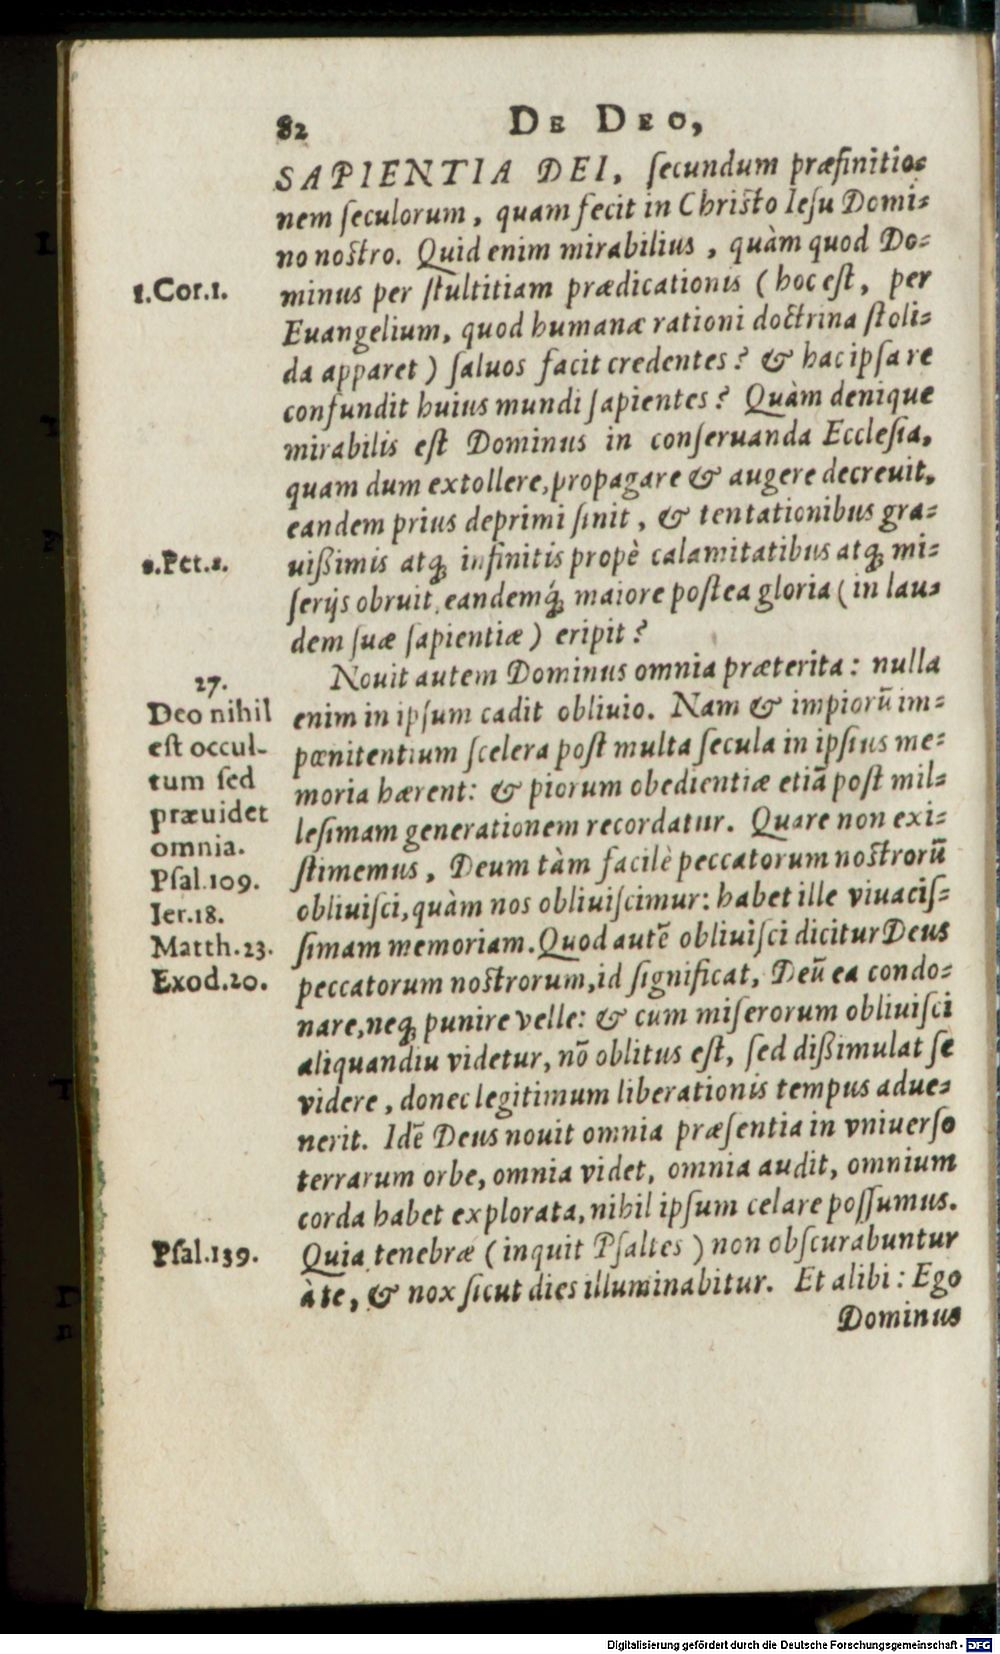 82 DE DEO,
SAPIENTIA DEI, ſecundum præfinitio=
nem ſeculorum, quam fecit in Chriſto Ieſu Domi=
no noſtro. Quid enim mirabilius, quàm quod Do=
1.Cor.1.
minus per ſtultitiam prædicationis (hoc eſt, per
Euangelium, quod humanæ rationi doctrina ſtoli=
da apparet) ſaluos facit credentes? & hac ipſa re
confundit huius mundi ſapientes? Quàm denique
mirabilis eſt Dominus in conſeruanda Eccleſia,
quam dum extollere, propagare & augere decreuit,
eandem prius deprimi ſinit, & tentationibus gra=
.Pet.
uißimis atq; infinitis propè calamitatibus atq; mi=
ſerijs obruit, eandemq́; maiore poſtea gloria (in lau=
dem ſuæ ſapientiæ) eripit?
27.
Deo nihil
eſt occul-
tum ſed
præuidet
omnia.
Pſal.109.
Ier.18.
Matth.23.
Exod.20.
Nouit autem Dominus omnia præterita: nulla
enim in ipſum cadit obliuio. Nam & impiorũ im=
pœnitentium ſcelera poſt multa ſecula in ipſius me=
moria hærent: & piorum obedientiæ etiã poſt mil=
leſimam generationem recordatur. Quare non exi=
ſtimemus, Deum tàm facilè peccatorum noſtrorũ
obliuiſci, quàm nos obliuiſcimur: habet ille viuaciſ=
ſimam memoriam. Quod autẽ obliuiſci dicitur Deus
peccatorum noſtrorum, id ſignificat, Deũ ea condo=
nare, neq; punire velle: & cum miſerorum obliuiſci
aliquandiu videtur, nõ oblitus eſt, ſed dißimulat ſe
videre, donec legitimum liberationis tempus adue=
nerit. Idẽ Deus nouit omnia præſentia in vniuerſo
terrarum orbe, omnia videt, omnia audit, omnium
corda habet explorata, nihil ipſum celare poſſumus.
Pſal.139.
Quia tenebræ (inquit Pſaltes) non obſcurabuntur
à te, & nox ſicut dies illuminabitur. Et alibi: Ego
Dominus
Digitalisierung gefördert durch die Deutsche Forschungsgemeinschaft - DFG